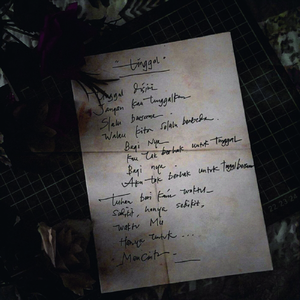 Tinggal
Tinggal disini
Jangan kau tinggalkan
Slalu bersama
Walau kita selalu berbeda.
Bagi Nya
Kau tak berhak untuk Tinggal
Bagi nya
Aku tak berhak untuk
Tuhan beri kami waktu
Sedikit, hanya sedikit.
Waktu Mu
Hanya untuk ...
Mencinta